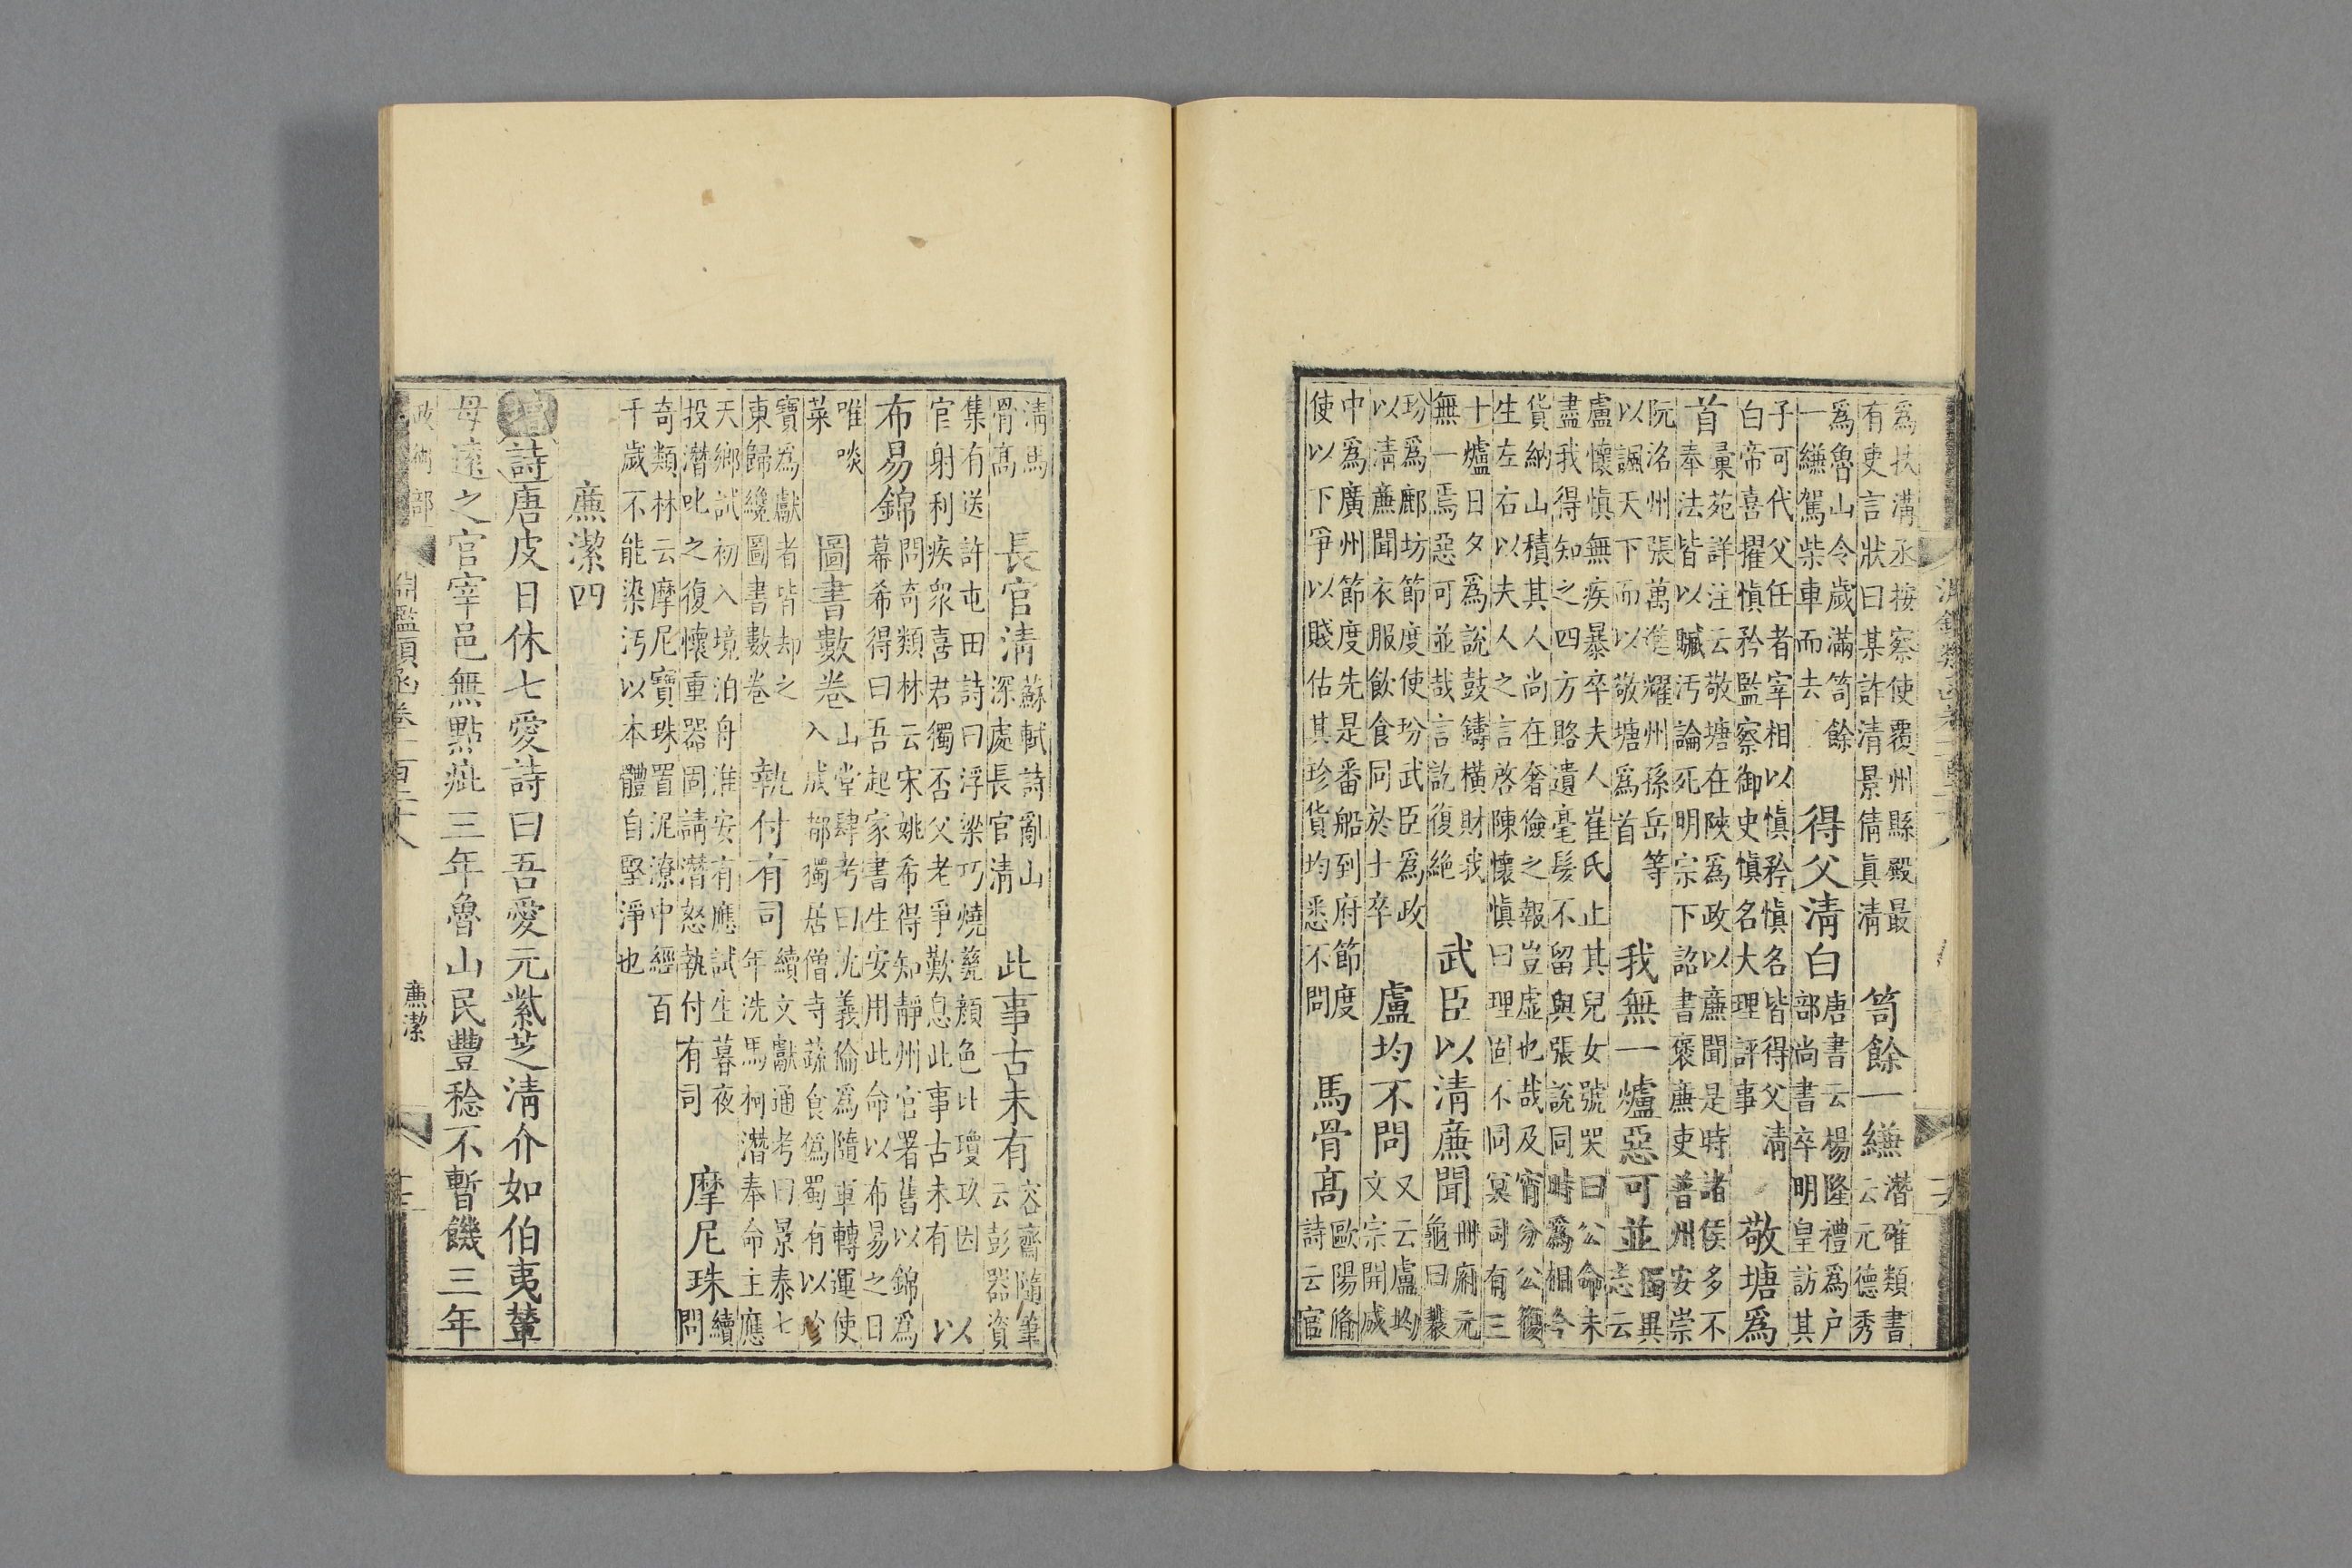 為扶溝丞按察使覆州縣殿最
有吏言狀曰某詐清景倩真清
笥餘一縑
潛確類書
云元德秀
為魯山令歲滿笥餘
一縑駕柴車而去
得父清白
唐書云楊隆禮為户
部尚書卒明皇訪其
子可代父任者宰相以慎矜慎名皆得父清
白帝喜擢慎矜監察御史慎名大理評事
敬塘為
首
彙苑詳注云敬塘在陜為政以廉聞是時諸侯多不
奉法皆以贓汚論死明宗下詔書褒廉吏普州安崇
阮洺州張萬進耀州孫岳等
以諷天下而以敬塘為首
我無一爐惡可並
獨異
志云
盧懷慎無疾暴卒夫人崔氏止其兒女號哭曰公命未
盡我得知之四方賂遺毫髮不留與張說同時為相今
貨納山積其人尚在奢儉之報豈虛也哉及宵分公復
生左右以夫人之言啓陳懷慎曰理固不同冥司有三
十爐日夕為說鼓鑄橫財我
無一焉惡可並哉言訖復絕
武臣以清廉聞
冊府元
龜曰裴
玢為鄜坊節度使玢武臣為政
以清廉聞衣服飲食同於士卒
盧均不問
又云盧均
文宗開成
中為廣州節度先是番船到府節度
使以下爭以賤估其珍貨均悉不問
馬骨高
歐陽脩
詩云官
清馬
骨高
長官清
蘇軾詩亂山
深處長官清
此事古未有
容齋隨筆
云彭器資
集有送許屯田詩曰浮梁巧燒甆顏色比瓊玖因
官射利疾眾喜君獨否父老爭歎息此事古未有
以
布易錦
問奇類林云宋姚希得知靜州官署舊以錦為
幕希得曰吾起家書生安用此命以布易之曰
唯啖
菜
圖書數卷
山堂肆考曰沈義倫為隨軍轉運使
入成都獨居僧寺蔬食偽蜀有以珍
寶為獻者皆却之
東歸纔圖書數卷
執付有司
續文獻通考曰景泰七
年洗馬柯潛奉命主應
天鄉試初入境泊舟淮安有應試生暮夜
投潛叱之復懷重器固請潛怒執付有司
摩尼珠
續
問
奇類林云摩尼寶珠置泥潦中經百
千歲不能染汚以本體自堅淨也
廉潔四
增詩唐皮日休七愛詩曰吾愛元紫芝清介如伯夷輦
母遠之官宰邑無點疵三年魯山民豐稔不暫饑三年
淵鑑類函卷二百三十八
廉潔